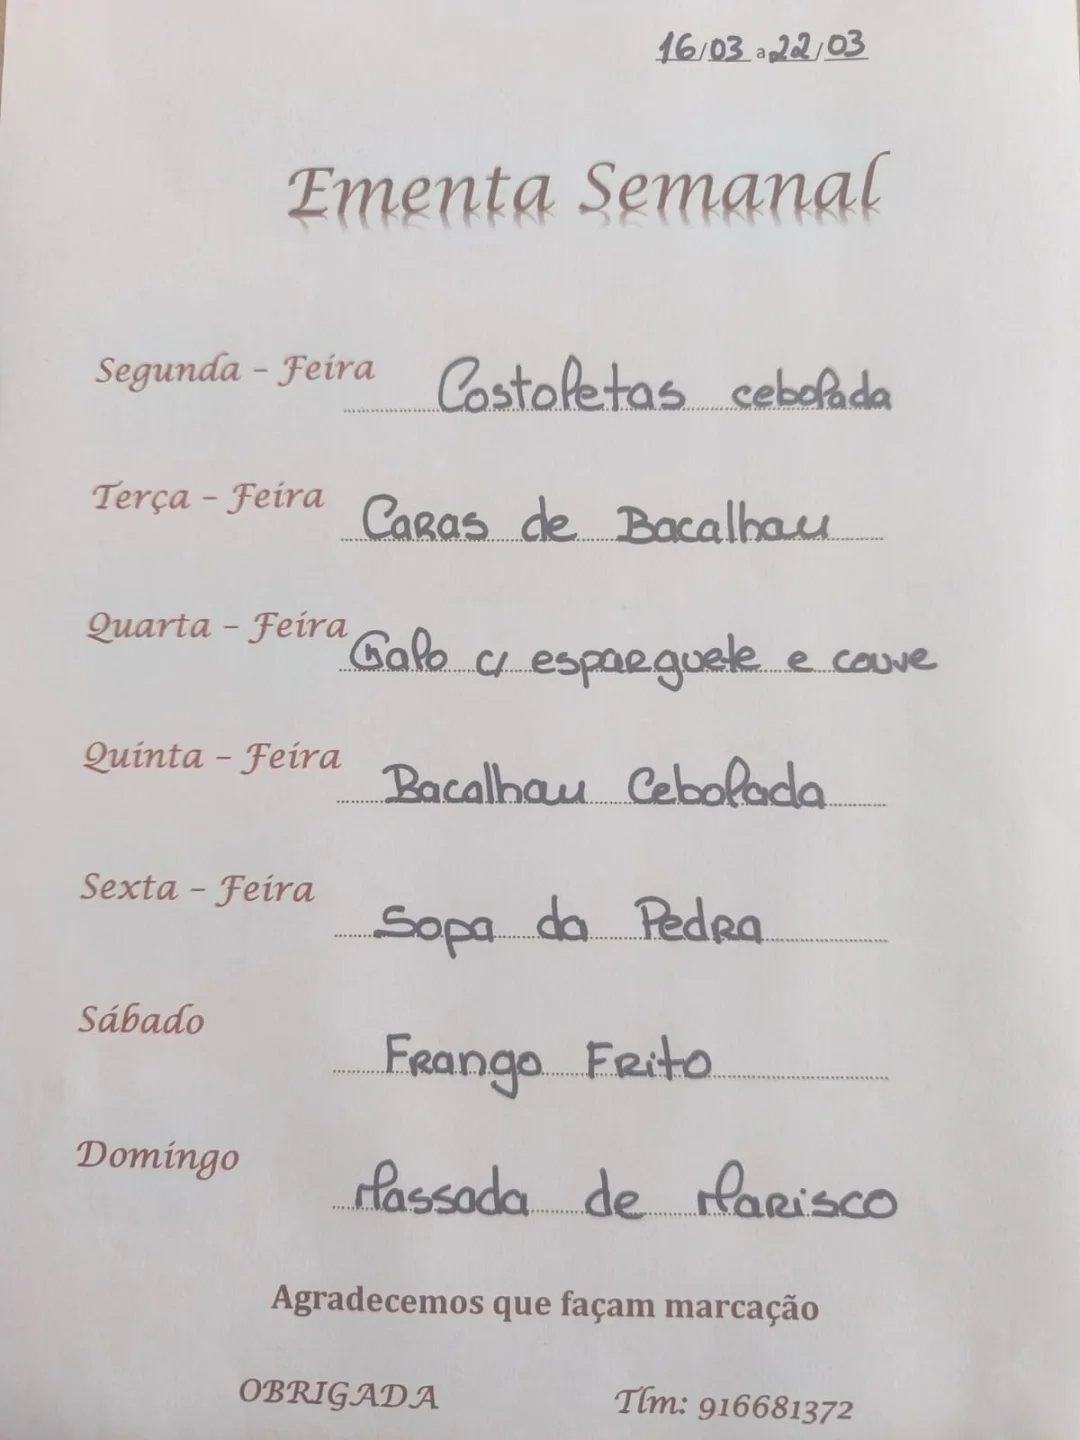 16/03 a 22/03
Ementa Semanal
Segunda - Feira Costoletas cebolada
Terça - Feira Caras de Bacalhau
Quarta - Feira Galo c/ esparguete e couve
Quinta - Feira Bacalhau Cebolada
Sexta - Feira Sopa da Pedra
Sábado Frango Frito
Domingo Massada de Marisco
Agradecemos que façam marcação
OBRIGADA Tlm: 916681372